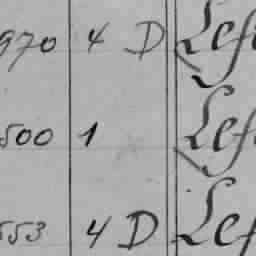 970 4 D Lef
500 1 Lef
553 4 D Lef